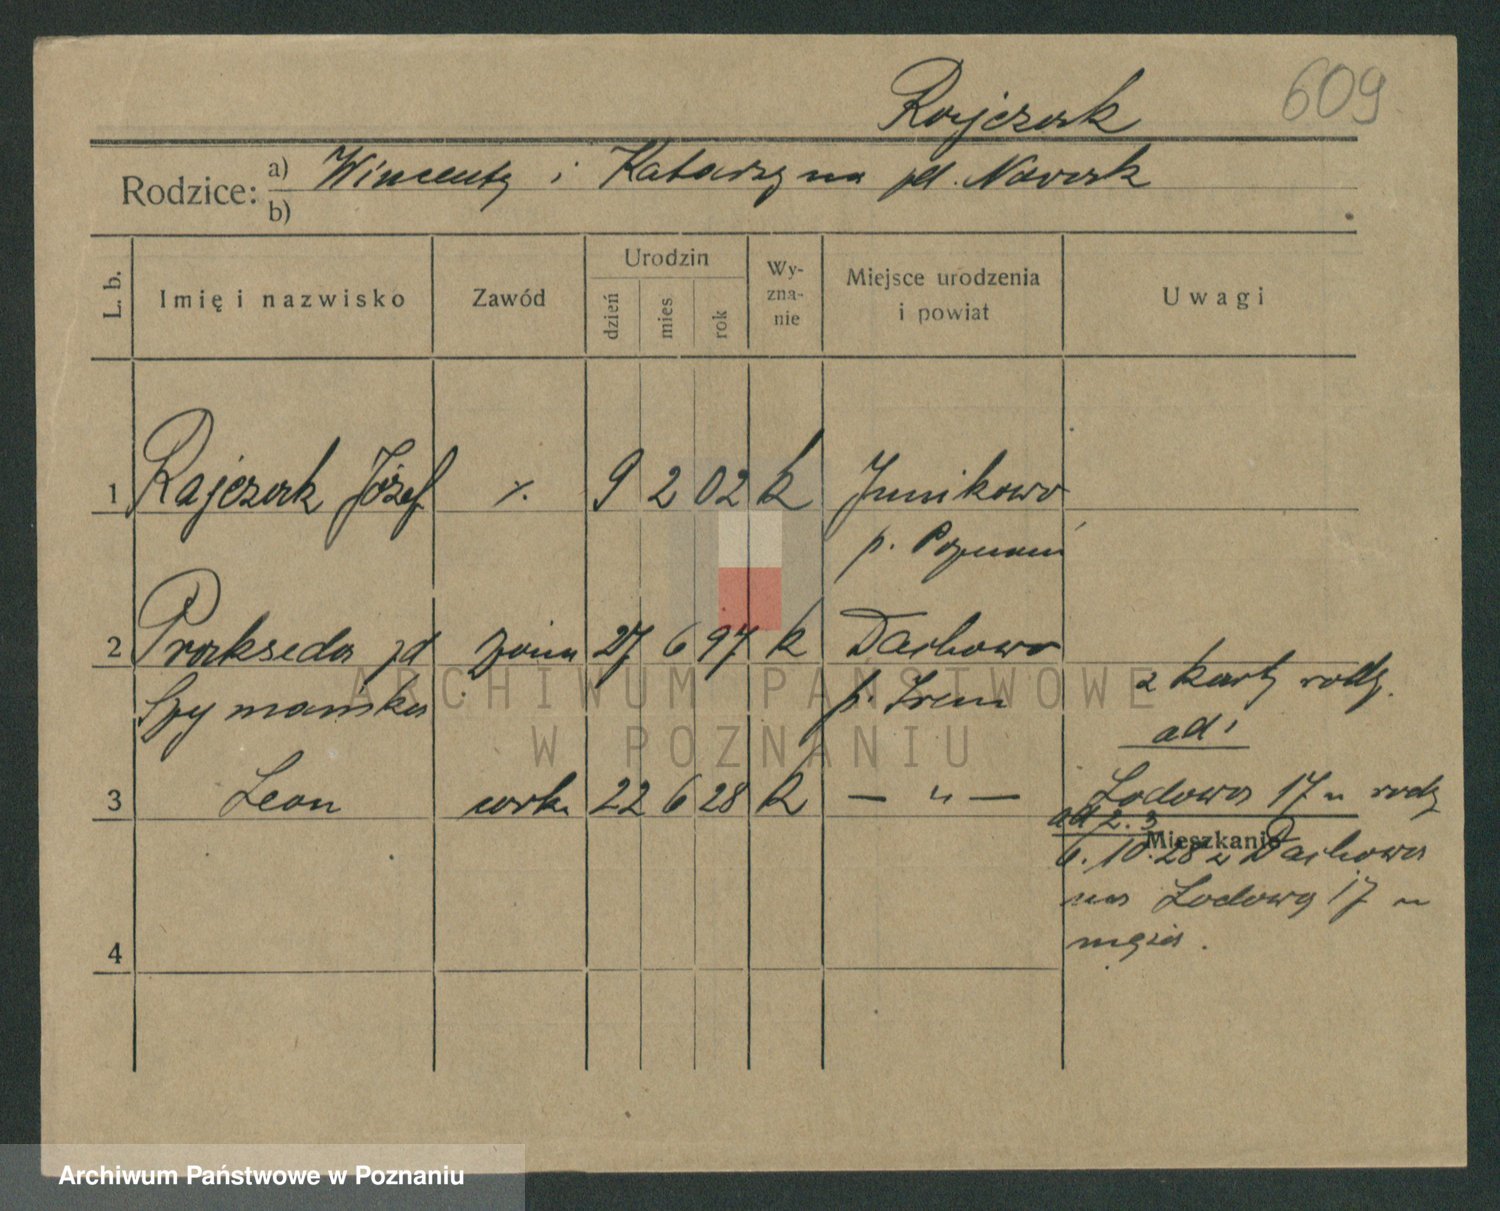 609
Rajczak
Rodzice: a) Wincenty i Katarzyna zd. Nawrok
b)
L. b. Imię i nazwisko Zawód Urodzin dzień mies rok Wyznanie Miejsce urodzenia i powiat Uwagi
1 Rajczak Józef 9 2 02 k Junikowo
p. Poznań
2 Prakseda zd żona 27 6 97 k Dachowa
Szymańska p. Śrem z karty rodz.
ad 1
3 Leon 22 6 28 k — " — Lodowa 17 u rodz
ad 2. 3
Mieszkanie
6. 10. 28 z Dachowa
na Lodową 17 u
4 męża.
ARCHIWUM PAŃSTWOWE
W POZNANIU
Archiwum Państwowe w Poznaniu